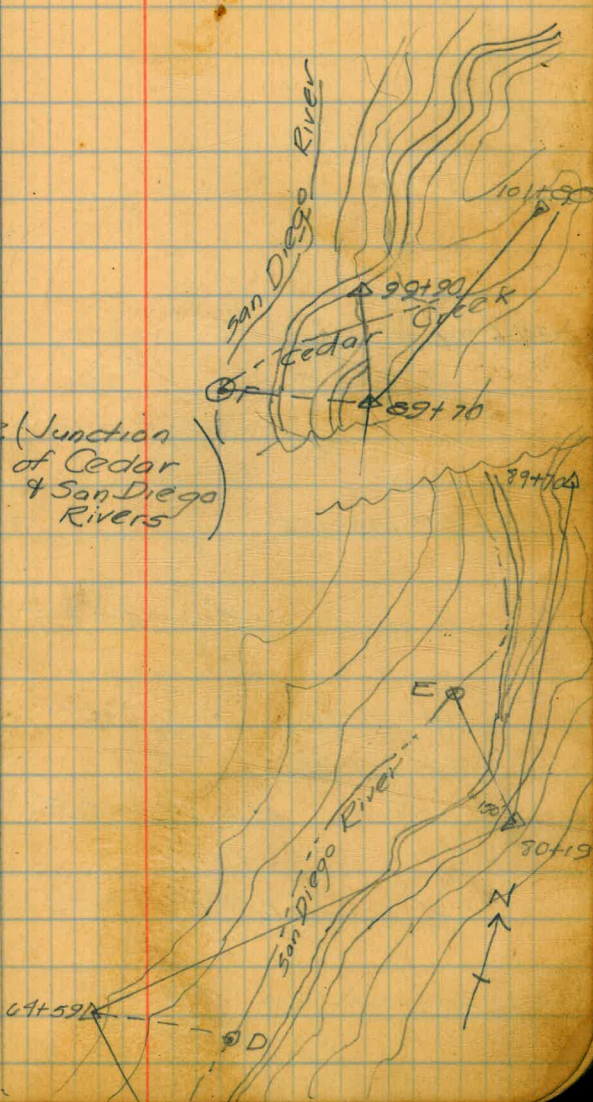 San Diego River
99+90
Cedar Creek
F
89+70
(Junction
of Cedar
& San Diego
Rivers)
89+70
E
San Diego River
150'
80+19
N
64+59
D